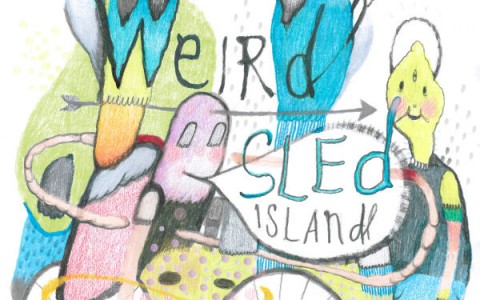 WeIRd
SLEd
ISLANd